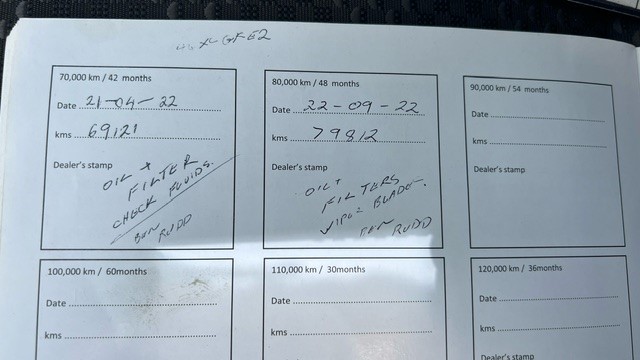 70,000 km / 42 months
Date 21-04-22
kms 69121
Dealer's stamp
OIL +
FILTER
CHECK FLUIDS.
BEN RUDD
80,000 km / 48 months
Date 22-09-22
kms 79812
Dealer's stamp
OIL +
FILTERS
WIPER BLADES.
BEN RUDD
90,000 km / 54 months
Date
kms
Dealer's stamp
100,000 km / 60months
Date
kms
110,000 km / 30months
Date
kms
120,000 km / 36months
Date
kms
Dealer's stamp